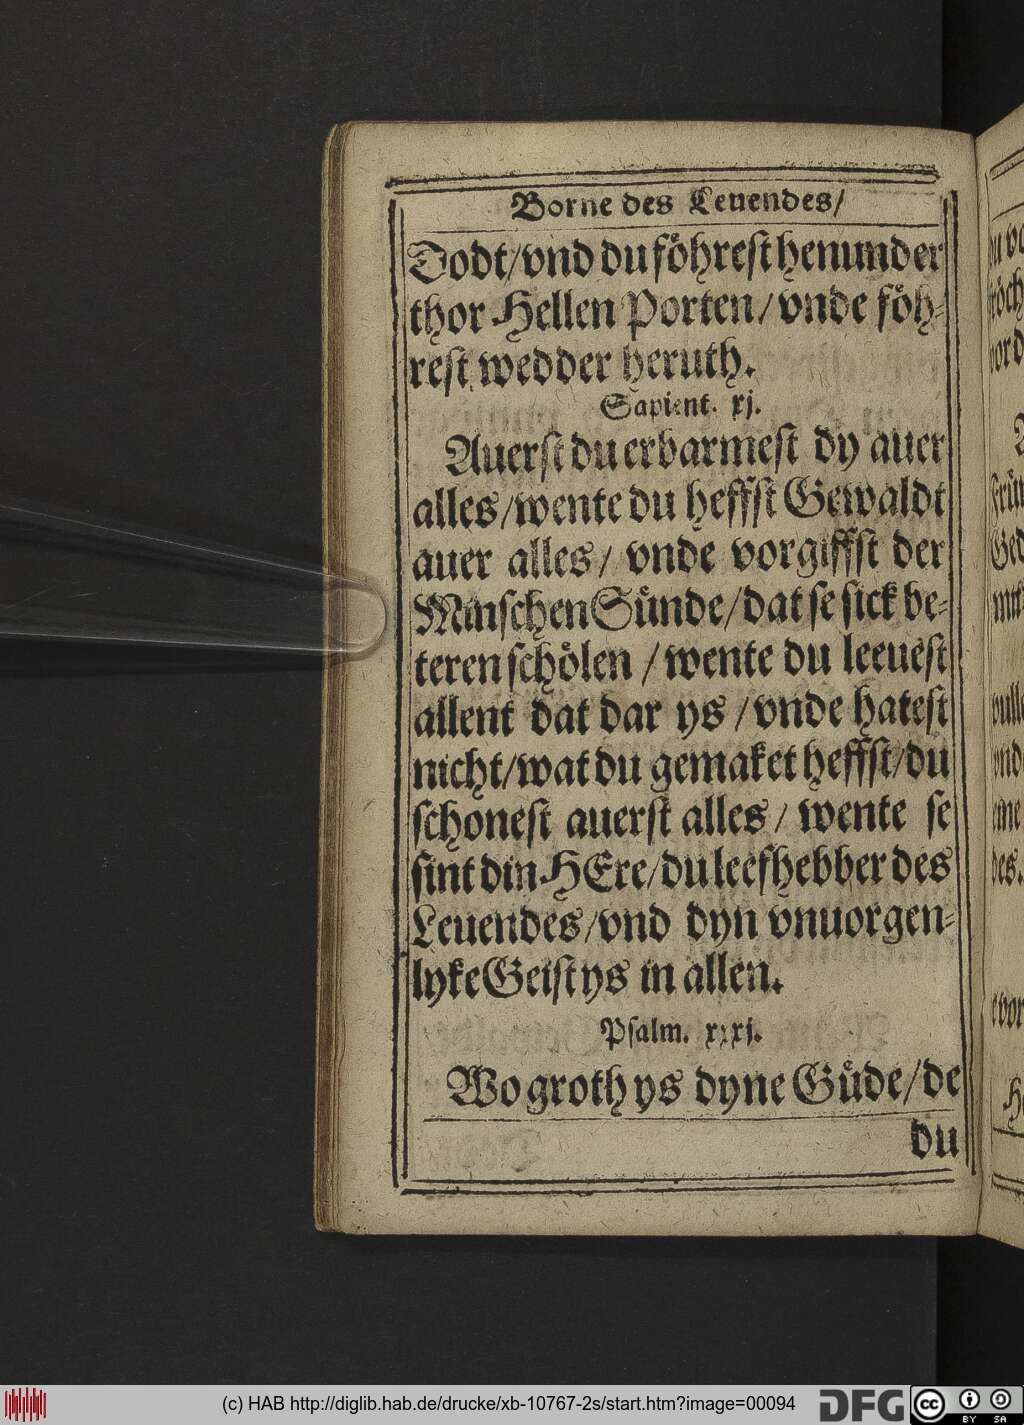 Borne des Leuendes/
Dodt/vnd du foͤhrest henunder
thor Hellen Porten/vnde foͤh-
rest wedder heruth.
Sapient. xj.
Auerst du erbarmest dy auer
alles/wente du heffst Gewaldt
auer alles/ vnde vorgiffst der
Minschen Suͤnde/dat se sick be-
teren schoͤlen /wente du leeuest
allent dat dar ys /vnde hatest
nicht/wat du gemaket heffst/du
schonest auerst alles/ wente se
sint din HEre/du leefhebber des
Leuendes/vnd dyn vnuorgen-
lyke Geist ys in allen.
Psalm. xxxj.
Wo groth ys dyne Guͤde/de
du
(c) HAB http://diglib.hab.de/drucke/xb-10767-2s/start.htm?image=00094
DFG
cc BY SA